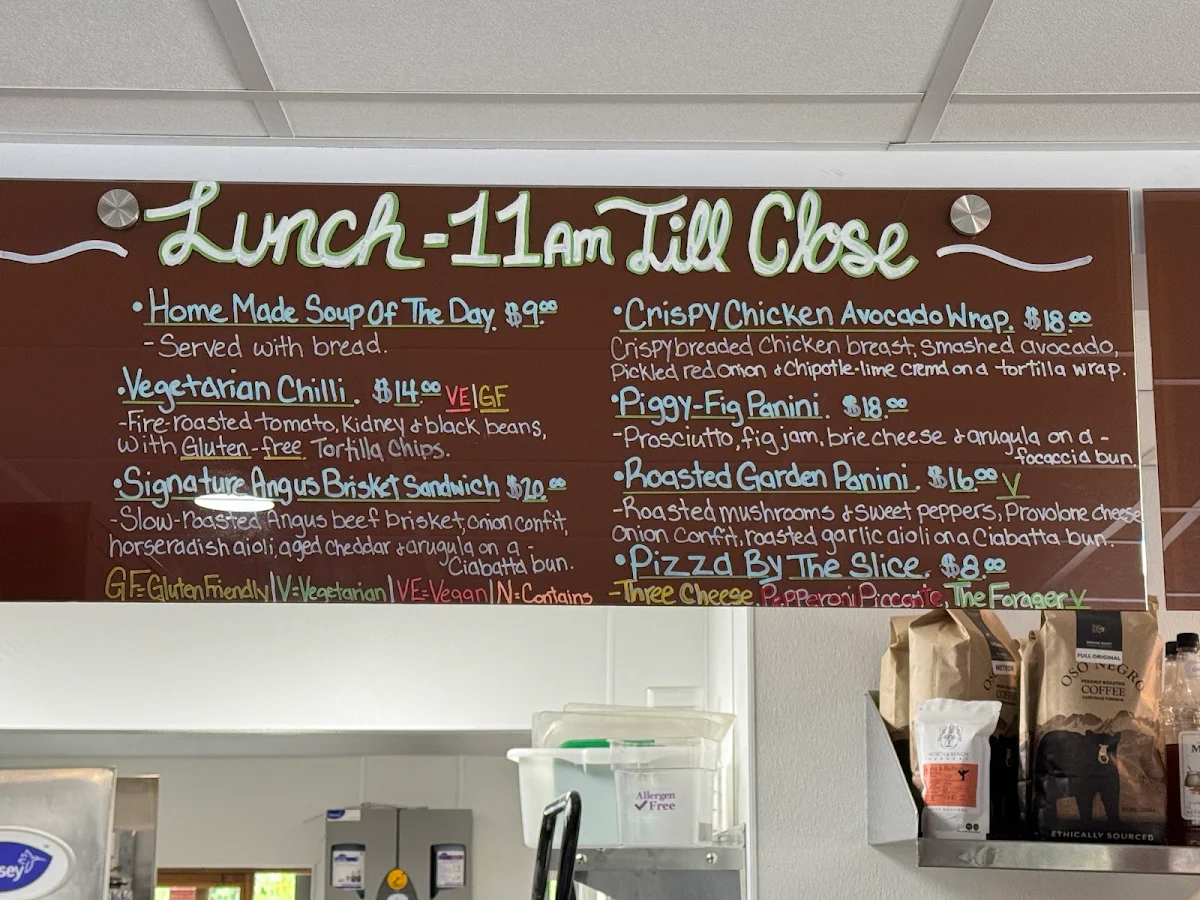 Lunch - 11 Am Till Close
• Home Made Soup Of The Day. $9.00
- Served with bread.
• Vegetarian Chilli. $14.00 VE|GF
- Fire-roasted tomato, kidney & black beans,
with Gluten-free Tortilla Chips.
• Signature Angus Brisket Sandwich $20.00
- Slow-roasted Angus beef brisket, onion confit,
horseradish aioli, aged cheddar & arugula on a -
Ciabatta bun.
GF=Gluten Friendly|V=Vegetarian|VE=Vegan|N=Contains
• Crispy Chicken Avocado Wrap. $18.00
Crispy breaded chicken breast, smashed avocado,
Pickled red onion & Chipotle-lime crema on a tortilla wrap.
• Piggy-Fig Panini. $18.00
- Prosciutto, fig jam, brie cheese & arugula on a -
focaccia bun.
• Roasted Garden Panini. $16.00 V
- Roasted mushrooms & sweet peppers, Provolone cheese
Onion Confit, roasted garlic aioli on a Ciabatta bun.
• Pizza By The Slice. $8.00
- Three Cheese, Pepperoni Piccante, The Forager V
METEOR
FULL ORIGINAL
OSO NEGRO
FRESHLY ROASTED
COFFEE
ETHICALLY SOURCED
NORTH & BENCH
Allergen
Free
sey